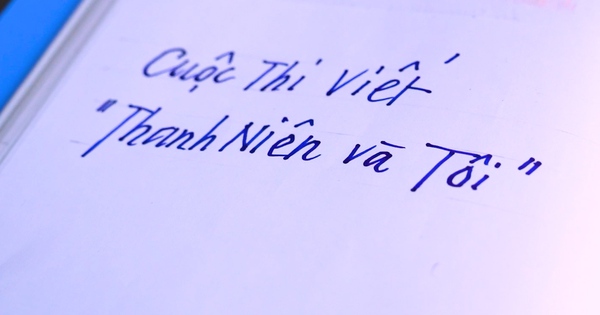 Cuộc Thi Viết
"Thanh Niên và Tôi"